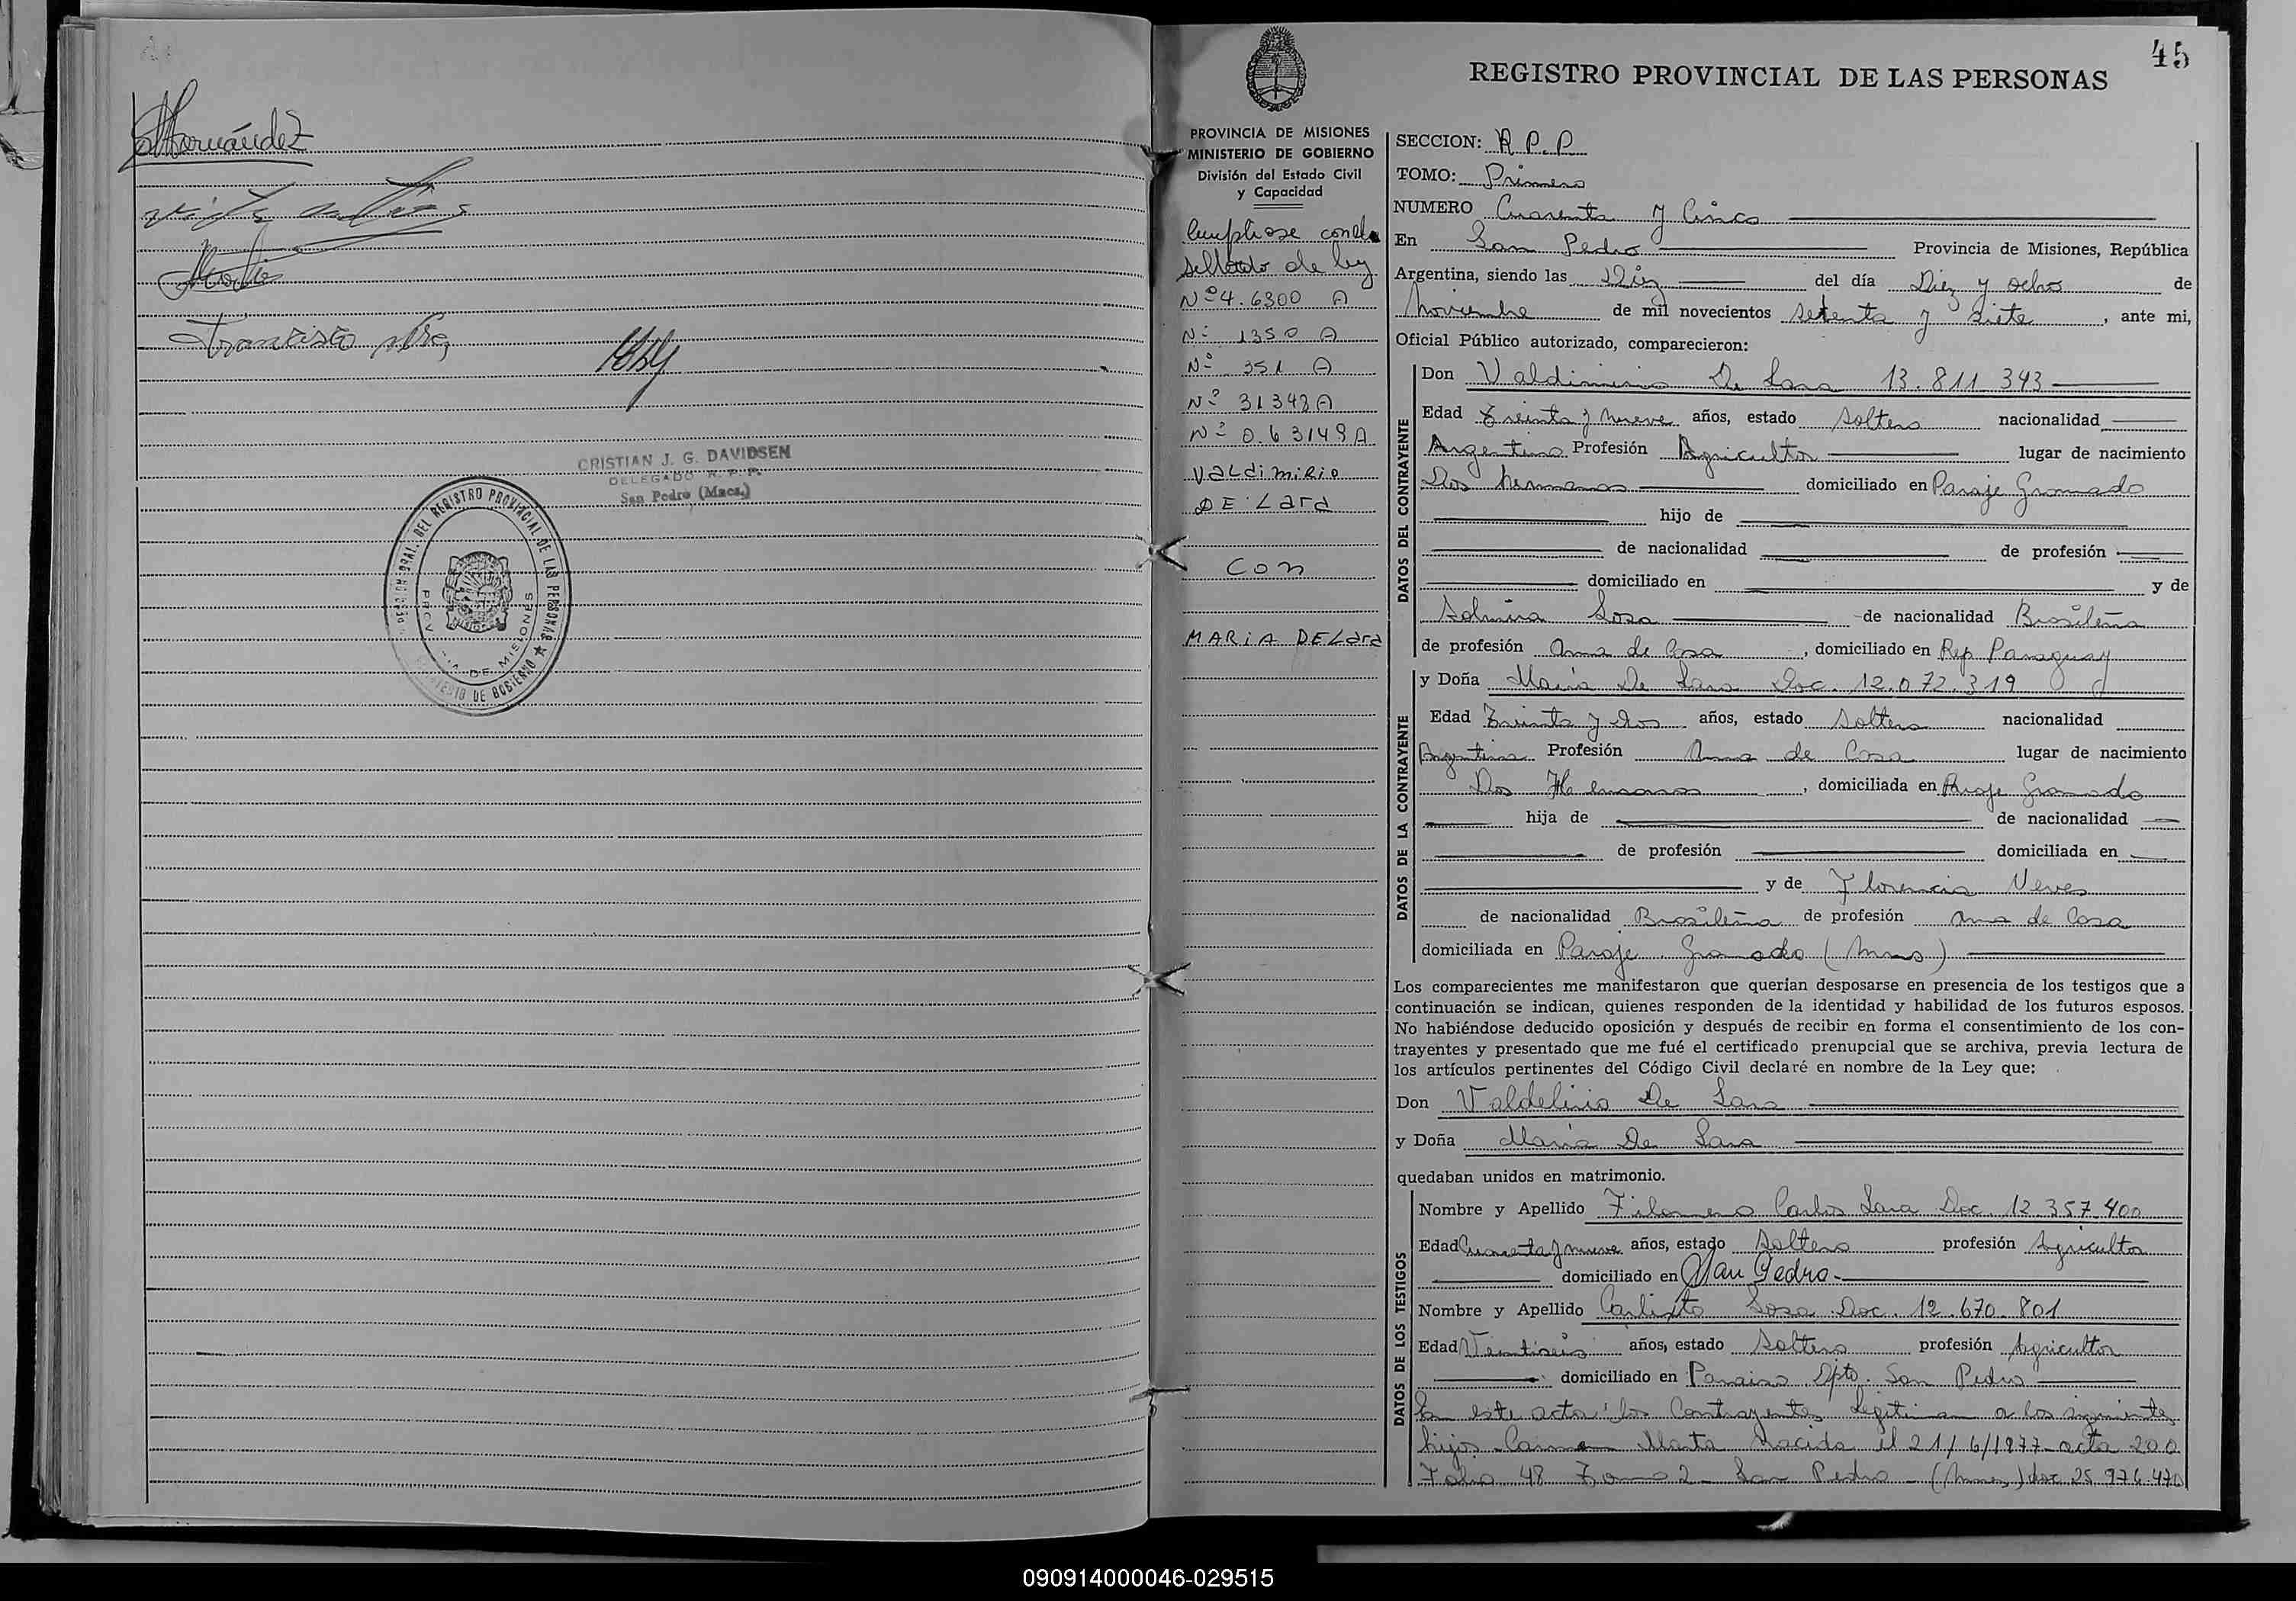 Hernández
Francisco
CRISTIAN J. G. DAVIDSEN
DELEGADO R. P. P.
San Pedro (Mnes.)
DEL REGISTRO PROVINCIAL DE LAS PERSONAS ★ MINISTERIO DE GOBIERNO
PROVINCIA DE MISIONES
45
REGISTRO PROVINCIAL DE LAS PERSONAS
PROVINCIA DE MISIONES
MINISTERIO DE GOBIERNO
División del Estado Civil
y Capacidad
Cumpliose con el
sellado de ley
Nº 4.6300 A
Nº 1350 A
Nº 351 A
Nº 31348 A
Nº 0.63149 A
VALdiMiRio
DE LARA
CON
MARiA DE LARA
SECCION: R.P.P
TOMO: Primero
NUMERO Cuarenta y Cinco
En San Pedro Provincia de Misiones, República
Argentina, siendo las Diez del día Diez y ocho de
Noviembre de mil novecientos setenta y siete, ante mi,
Oficial Público autorizado, comparecieron:
DATOS DEL CONTRAYENTE
Don Valdimirio De Lara 13.811.343
Edad Treinta y nueve años, estado soltero nacionalidad
Argentino Profesión Agricultor lugar de nacimiento
Dos hermanas domiciliado en Paraje Gramado
hijo de
de nacionalidad de profesión
domiciliado en y de
Sosa de nacionalidad Brasileña
de profesión Ama de Casa, domiciliado en Rep. Paraguay
DATOS DE LA CONTRAYENTE
y Doña María De Lara Doc. 12.072.319
Edad Treinta y dos años, estado soltera nacionalidad
Argentina Profesión Ama de Casa lugar de nacimiento
Dos Hermanas, domiciliada en Paraje Gramado
hija de de nacionalidad
de profesión domiciliada en
y de Florencia Neves
de nacionalidad Brasileña de profesión Ama de Casa
domiciliada en Paraje Gramado (Mnes)
Los comparecientes me manifestaron que querían desposarse en presencia de los testigos que a
continuación se indican, quienes responden de la identidad y habilidad de los futuros esposos.
No habiéndose deducido oposición y después de recibir en forma el consentimiento de los con-
trayentes y presentado que me fué el certificado prenupcial que se archiva, previa lectura de
los artículos pertinentes del Código Civil declaré en nombre de la Ley que:
Don Valdelirio De Lara
y Doña María De Lara
quedaban unidos en matrimonio.
DATOS DE LOS TESTIGOS
Nombre y Apellido Filomeno Carlos Lara Doc. 12.357.400
Edad Cuarenta y nueve años, estado Soltero profesión Agricultor
domiciliado en San Pedro.-
Nombre y Apellido Carlixto Sosa Doc. 12.670.801
Edad Veintiseis años, estado Soltero profesión Agricultor
domiciliado en Paraiso Dpto. San Pedro
En este acto los Contrayentes Legitiman a los siguientes
hijos Carmen Marta Nacida el 21/6/1977 acta 200
Folio 48 Tomo 2 San Pedro (Mnes) doc 25.976.470
090914000046-029515